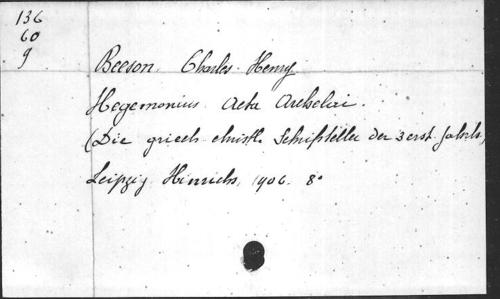 136
60
9
Beeson, Charles Henry
Hegemonius. Acta Archelai.
(Die griech. christl. Schriftsteller der 3 erst. Jahrh.)
Leipzig, Hinrichs, 1906. 8°